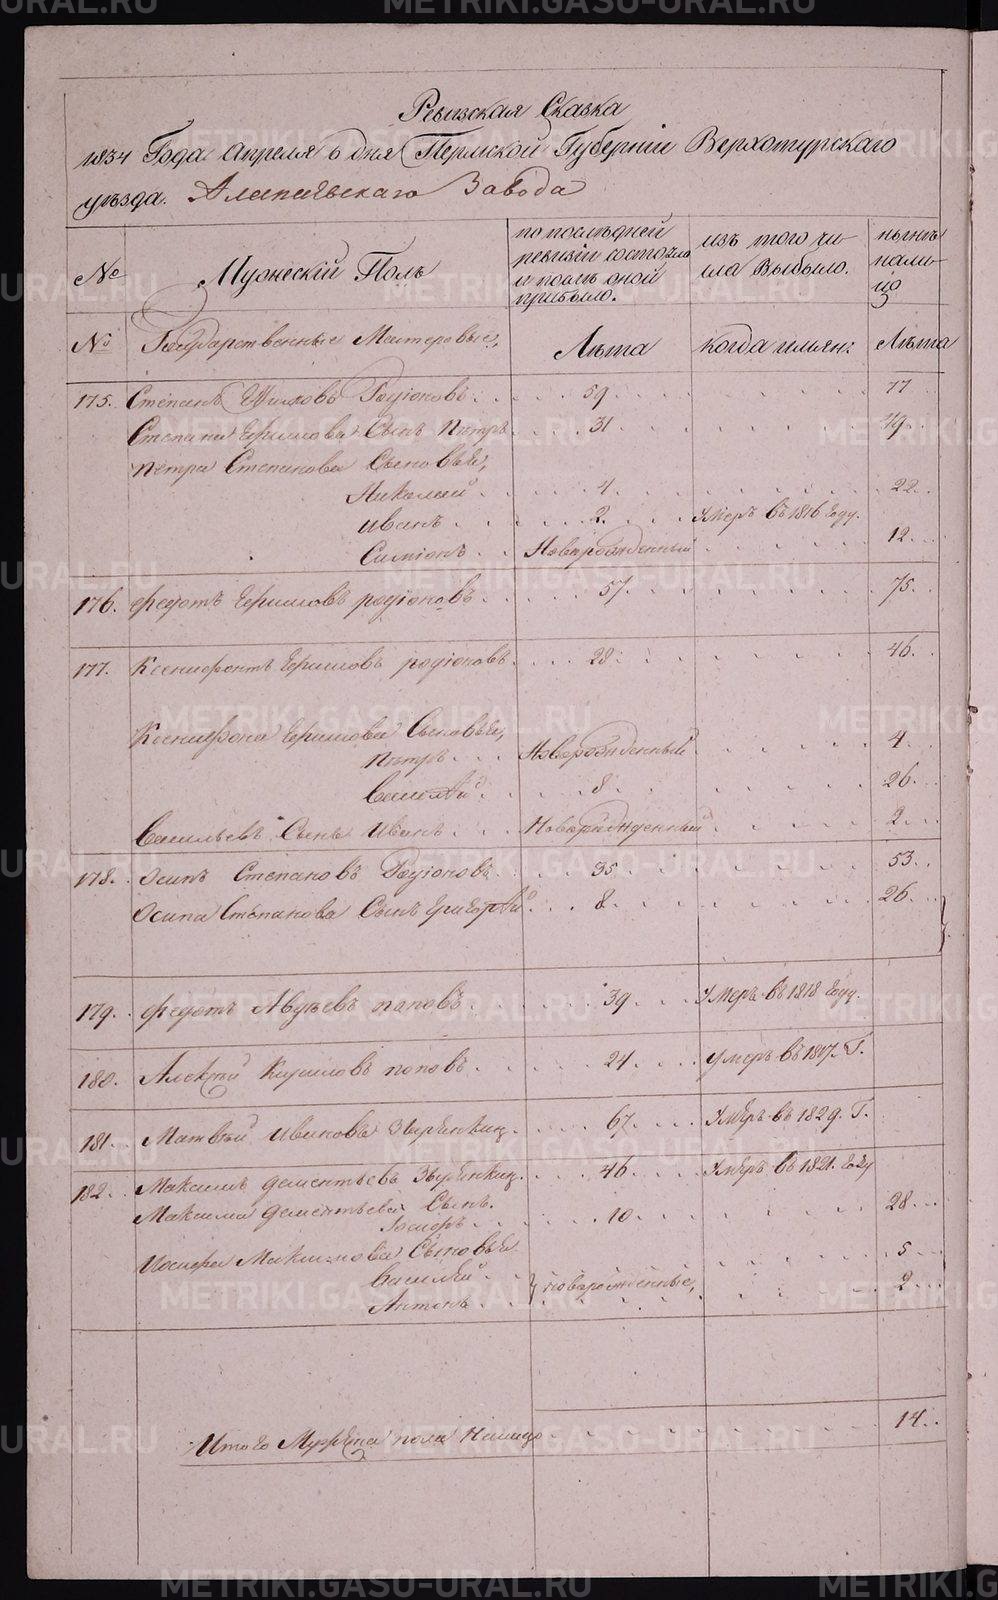 Ревизская Сказка
1834 Года Апреля 6 дня Пермской Губернии Верхотурскаго
уѣзда. Алапаевскаго Завода
№
Мужескій Полъ
по послѣдней
ревизіи состояло
и послѣ оной
прибыло.
изъ того чи-
сла Выбыло.
нынѣ
нали-
цо
№
Государственные Мастеровые,
Лѣта
когда имян:
Лѣта
175. Степанъ Родіоновъ 59 77
Степана Сынъ Петръ 31 49
Петра Степанова Сыновья,
Николай 4 22
Иванъ 2. Умеръ въ 1816 Году.
Симіонъ Новорожденный 12
176. Федотъ Ефимовъ родіоновъ 57 75
177. Ксенофонтъ Ефимовъ родіоновъ 28 46
Ксенофона Ефимова Сыновья,
Петръ Новорожденный 4
Василій 8 26
Васильевъ Сынъ Иванъ Новорожденный 2
178. Осипъ Степановъ Родіоновъ 35 53
Осипа Степанова Сынъ Григорій 8 26
179. Федотъ поповъ 39 Умеръ въ 1818 Году.
180. Алексѣй Кириловъ поповъ 24 умеръ въ 1817. Г.
181. Матвѣй Ивановъ Зырянкин. 67 Умеръ въ 1829. Г.
182. Максимъ Дементьевъ Зырянкин. 46 Умеръ въ 1821. Году
Максима Дементьева Сынъ.
Іосифъ 10 28
Иосифа Максимова Сыновья
Василій 5
Антонъ } новорожденные, 2
Итого Мужеска пола Налицо 14
METRIKI.GASO-URAL.RU